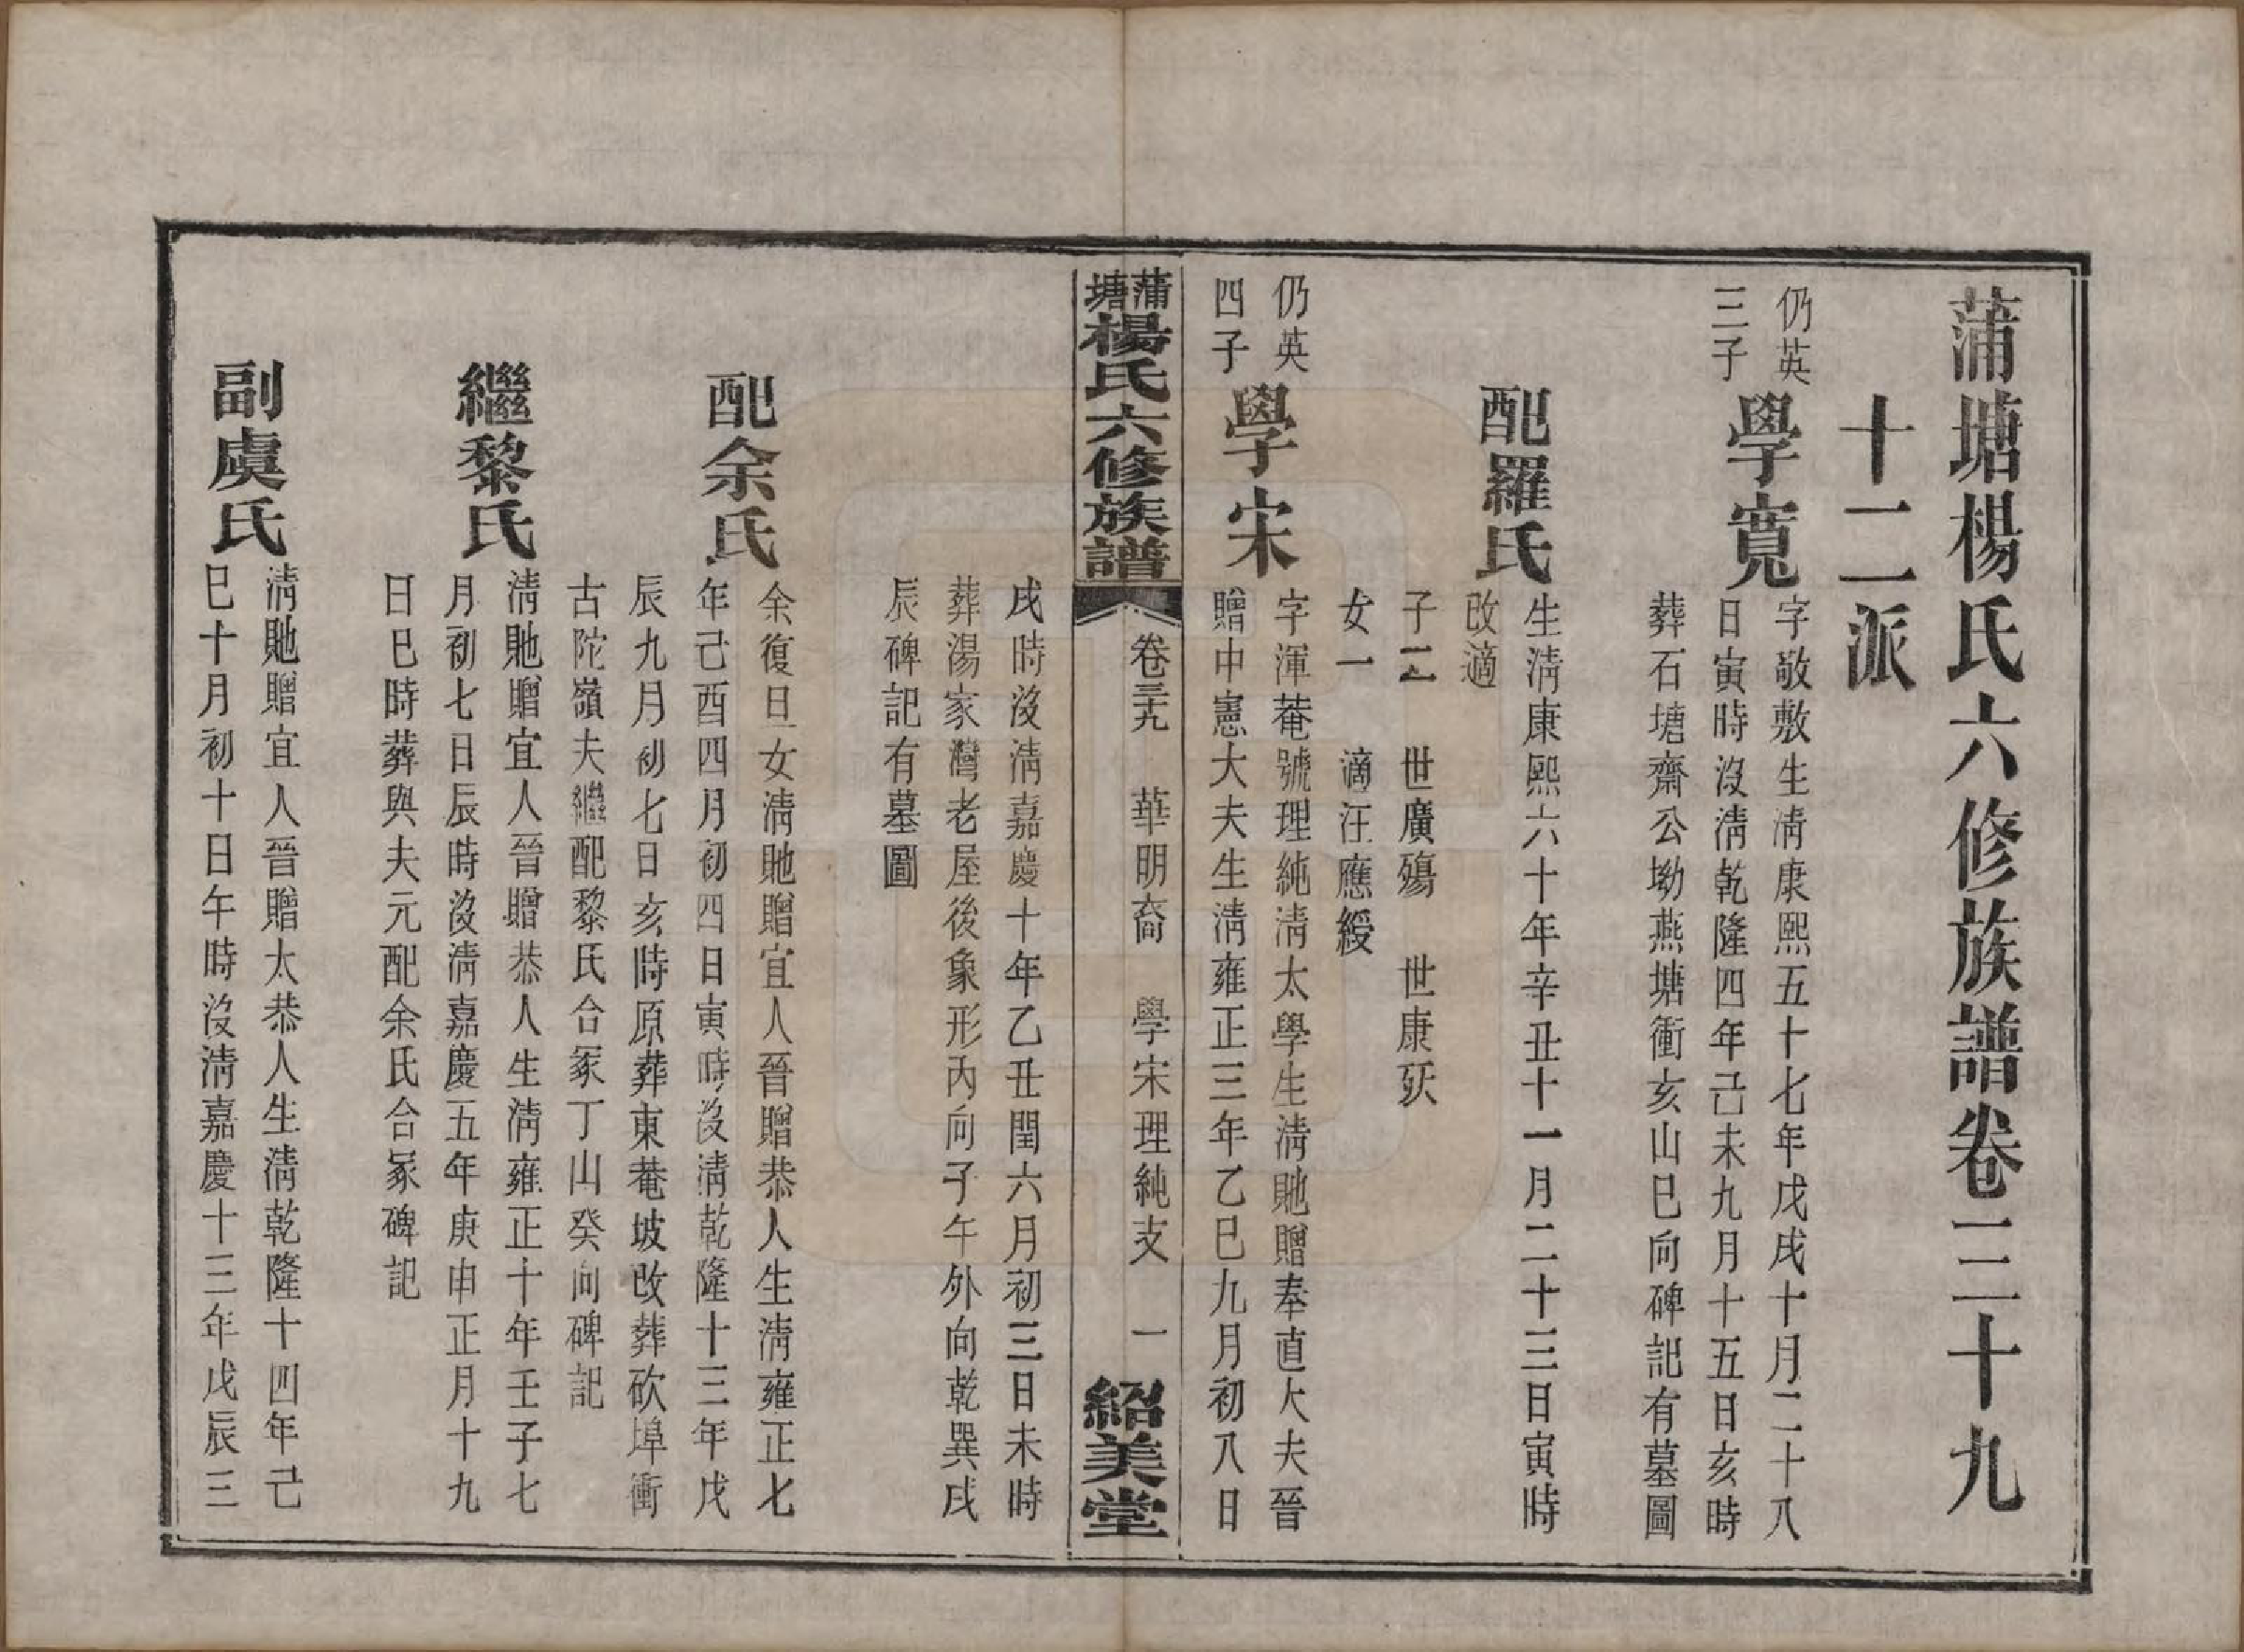 蒲塘楊氏六修族譜卷三十九
十二派
仍英
三子
學寬
字敬敷生淸康熙五十七年戊戌十月二十八
日寅時沒淸乾隆四年己未九月十五日亥時
葬石塘齋公坳燕塘衝亥山巳向碑記有墓圖
配羅氏
生淸康熙六十年辛丑十一月二十三日寅時
改適
子二 世廣殤 世康殀
女一 適汪應綬
仍英
四子
學宋
字渾菴號理純淸太學生淸貤贈奉直大夫晉
贈中憲大夫生淸雍正三年乙巳九月初八日
蒲塘楊氏六修族譜 卷三十九 華明裔 學宋理純支 一 紹美堂
戌時沒淸嘉慶十年乙丑閏六月初三日未時
葬湯家灣老屋後象形內向子午外向乾巽戌
辰碑記有墓圖
配余氏
余復旦女淸貤贈宜人晉贈恭人生淸雍正七
年己酉四月初四日寅時沒淸乾隆十三年戊
辰九月初七日亥時原葬東菴坡改葬砍埠衝
古陀嶺夫繼配黎氏合冢丁山癸向碑記
繼黎氏
淸貤贈宜人晉贈恭人生淸雍正十年壬子七
月初七日辰時沒淸嘉慶五年庚申正月十九
日巳時葬與夫元配余氏合冢碑記
副虞氏
淸貤贈宜人晉贈太恭人生淸乾隆十四年己
巳十月初十日午時沒淸嘉慶十三年戊辰三